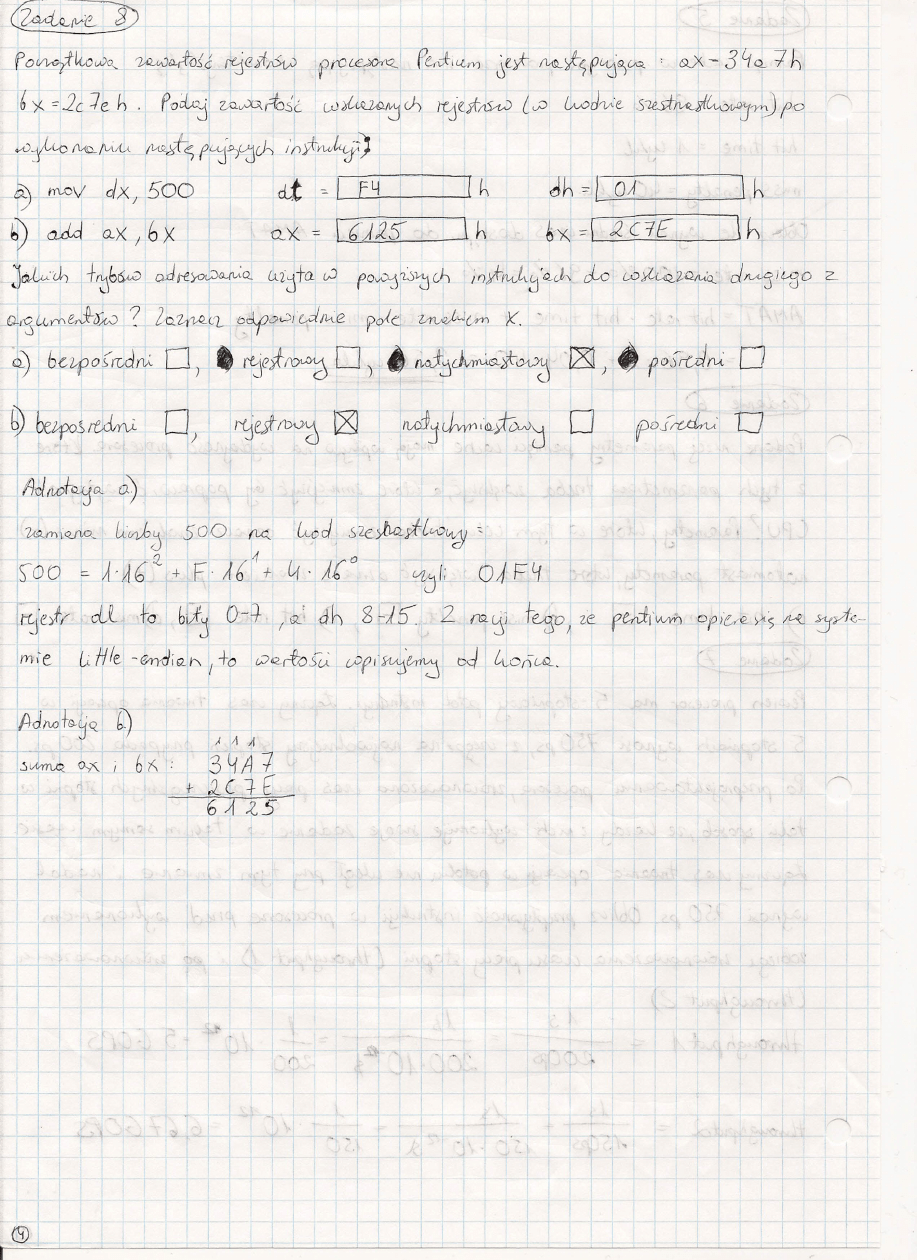 Zadanie 8
Początkowa zawartość rejestrów procesora Pentium jest następująca: ax-34a7h
bx=2c7eh. Podaj zawartość wskazanych rejestrów (w kodzie szestnastkowym) po
wykonaniu następujących instrukcji:
a) mov dx, 500 dl = F4 h dh = 01 h
b) add ax, bx ax = 6125 h bx = 2C7E h
Jakich trybów adresowania użyta w powyższych instrukcjach do wskazania drugiego z
argumentów? Zaznacz odpowiednie pole znakiem X.
a) bezpośredni ☐, rejestrowy ☐, natychmiastowy ☒, pośredni ☐
b) bezpośredni ☐, rejestrowy ☒ natychmiastowy ☐ pośredni ☐
Adnotacja a)
zamiana liczby 500 na kod szesnastkowy:
500 = 1·16² + F·16¹ + 4·16⁰ czyli 01F4
rejestr dl to bity 0-7, a dh 8-15. Z racji tego, że pentium opiera się na syste-
mie little-endian, to wartości wpisujemy od końca.
Adnotacja b)
1 1 1
suma ax i bx: 34A7
+ 2C7E
6125
4